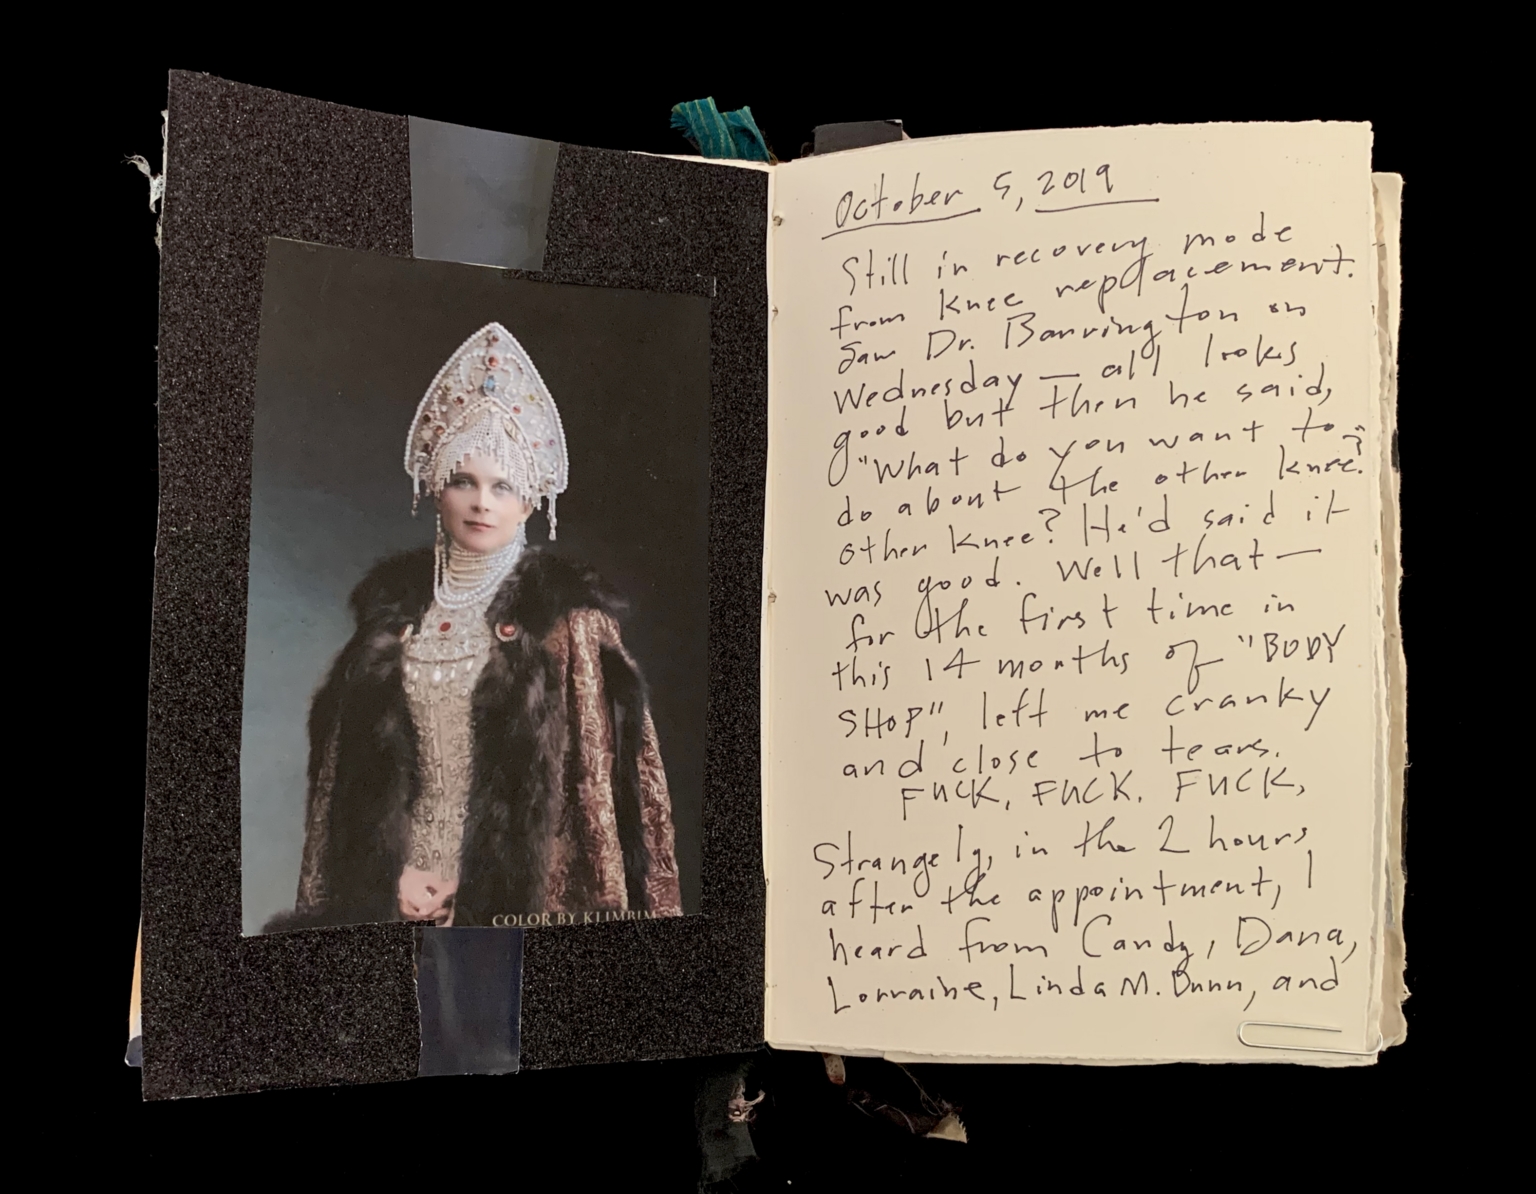 COLOR BY KLIMBIM
October 5, 2019
Still in recovery mode
from knee replacement.
Saw Dr. Barrington on
Wednesday — all looks
good but then he said,
"What do you want to
do about the other knee?"
other knee? He'd said it
was good. Well that —
for the first time in
this 14 months of "BODY
SHOP", left me cranky
and close to tears.
FUCK, FUCK. FUCK,
Strangely, in the 2 hours
after the appointment, I
heard from Candy, Dana,
Lorraine, Linda M. Dunn, and